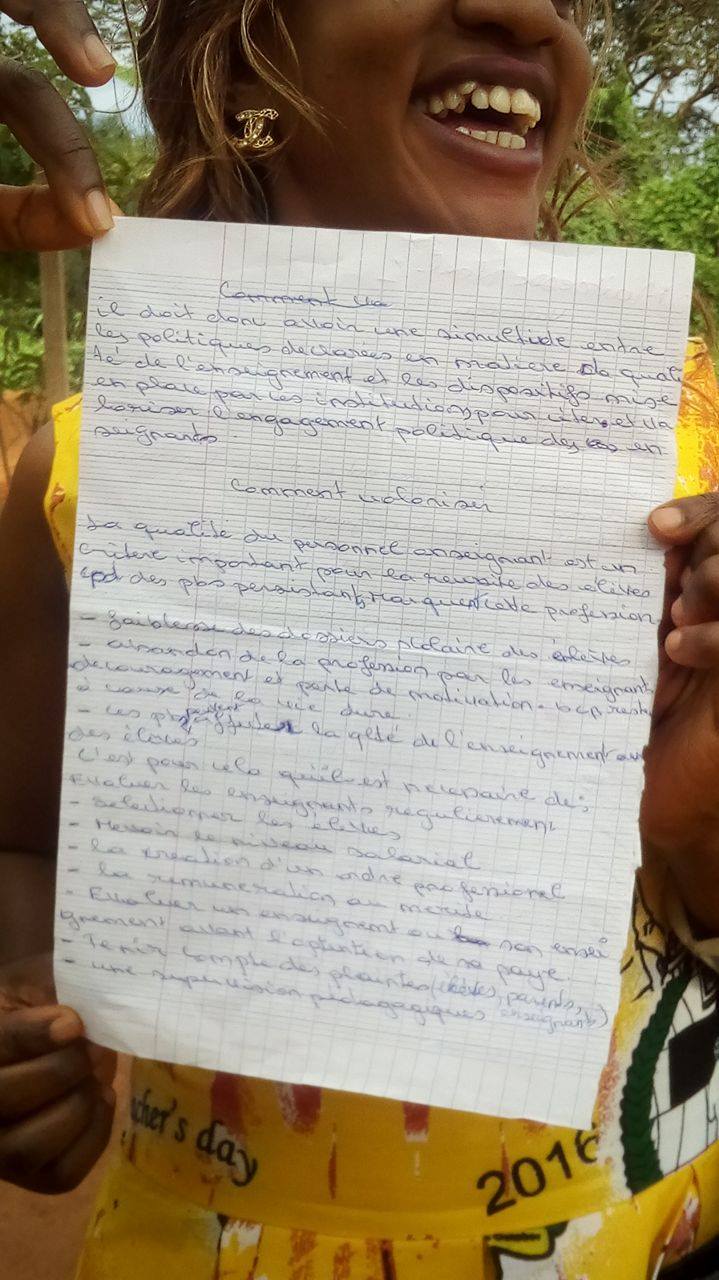 Comment va
il doit donc avoir une simultide entre
les politiques déclarées en matière de quali
té de l'enseignement et les dispositifs mise
en place par les institutions pour et va
loriser l'engagement politique des en
seignants.
Comment valoriser
La qualité du personnel enseignant est un
critère important pour la reussite des élèves
cpd des pbs persistants, marquent cette profession
- faiblesse des dossiers scolaire des élèves
- abandon de la profession par les enseignants
decouragement et perte de motivation. bcp reste
à cause de la vie dure.
- ces pbs peuvent affecter la qlté de l'enseignement
des élèves
C'est pour cela qu'il est nécessaire de:
Evaluer les enseignants regulièrement
- Selectionner les élèves
- Revoir le niveau salarial
- la creation d'un ordre professionel
- la remuneration au merite
- Evaluer un enseignant ou son ensei
gnement avant l'obtention de sa paye.
- Tenir compte des plaintes (élèves, parents,
enseignants)
- une supervision pédagogiques
acher's day
2016
October